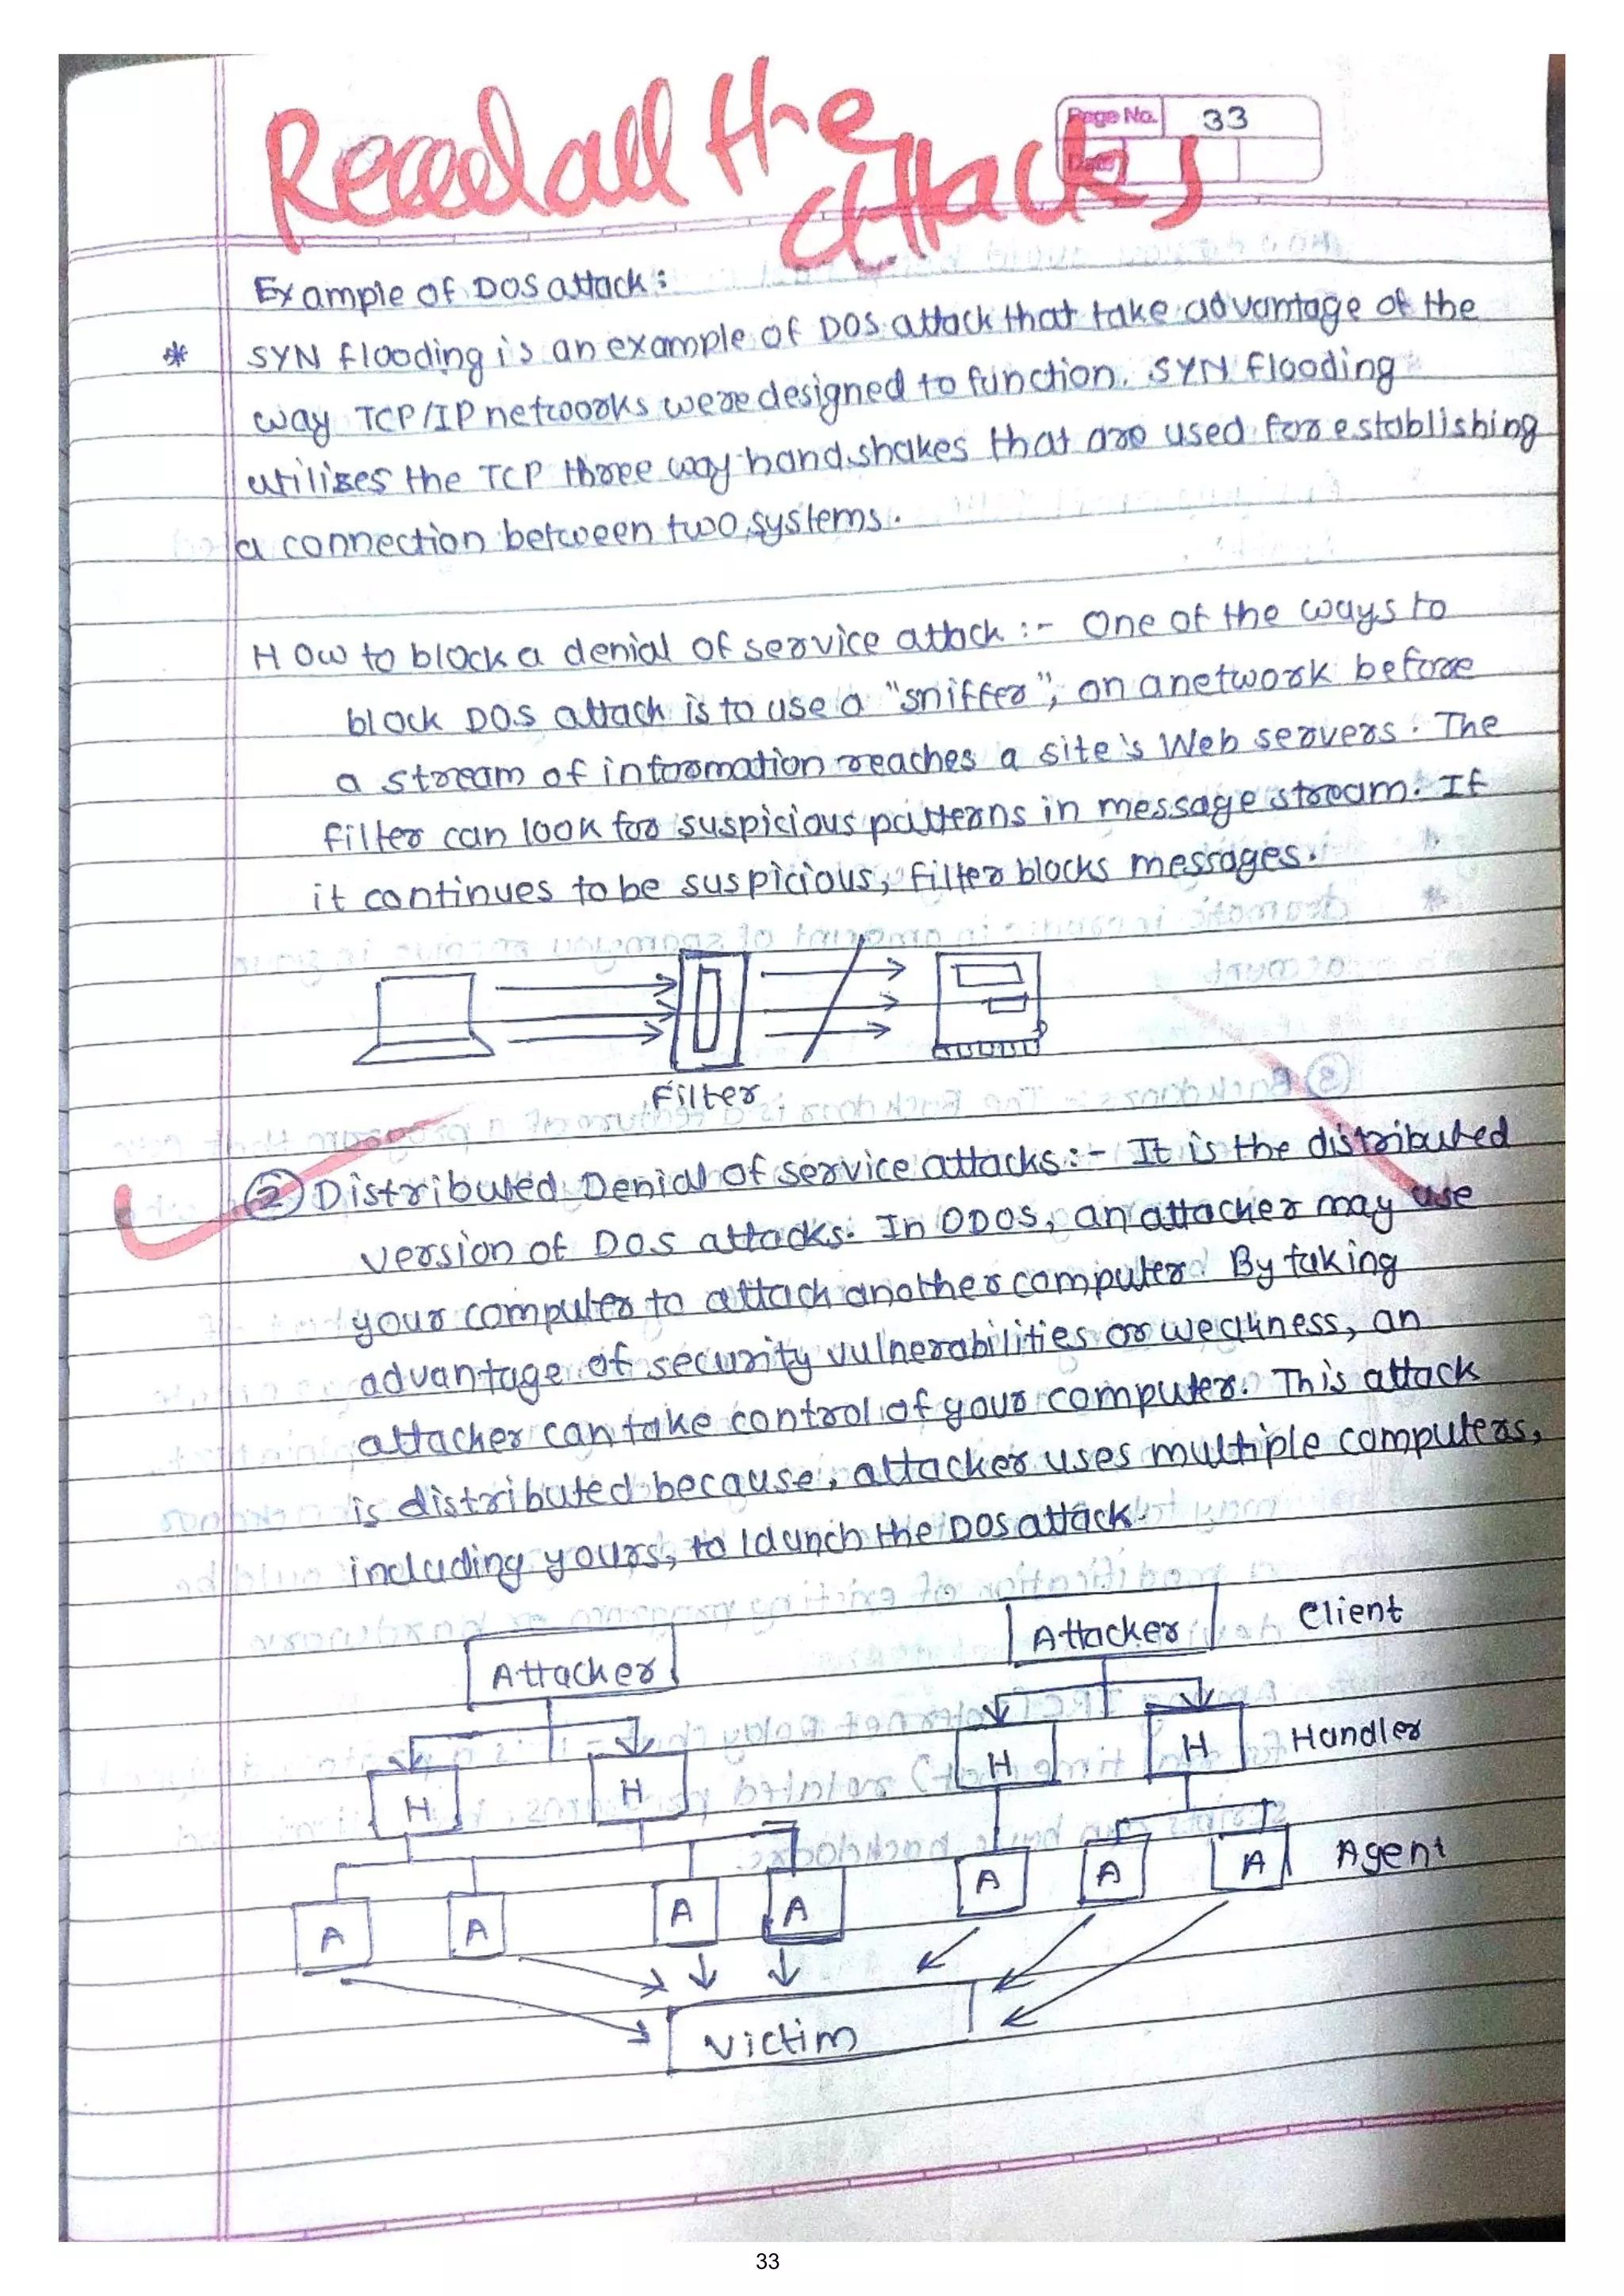 Read all the
attacks
Page No. 33
Date
Example of DOS attack :
* SYN flooding is an example of DOS attack that take advantage of the
way TCP/IP networks were designed to function. SYN flooding
utilizes the TCP three way handshakes that are used for establishing
a connection between two systems.
How to block a denial of service attack :- One of the ways to
block DOS attack is to use a "sniffer", on a network before
a stream of information reaches a site's Web servers. The
filter can look for suspicious patterns in message stream. If
it continues to be suspicious, filter blocks messages.
Filter
② Distributed Denial of service attacks :- It is the distributed
version of DOS attacks. In DDOS, an attacker may use
your computer to attack another computer. By taking
advantage of security vulnerabilities or weakness, an
attacker can take control of your computer. This attack
is distributed because, attacker uses multiple computers,
including yours, to launch the DOS attack.
Attacker Attacker Client
H H H H Handler
A A A A A A A Agent
Victim
33